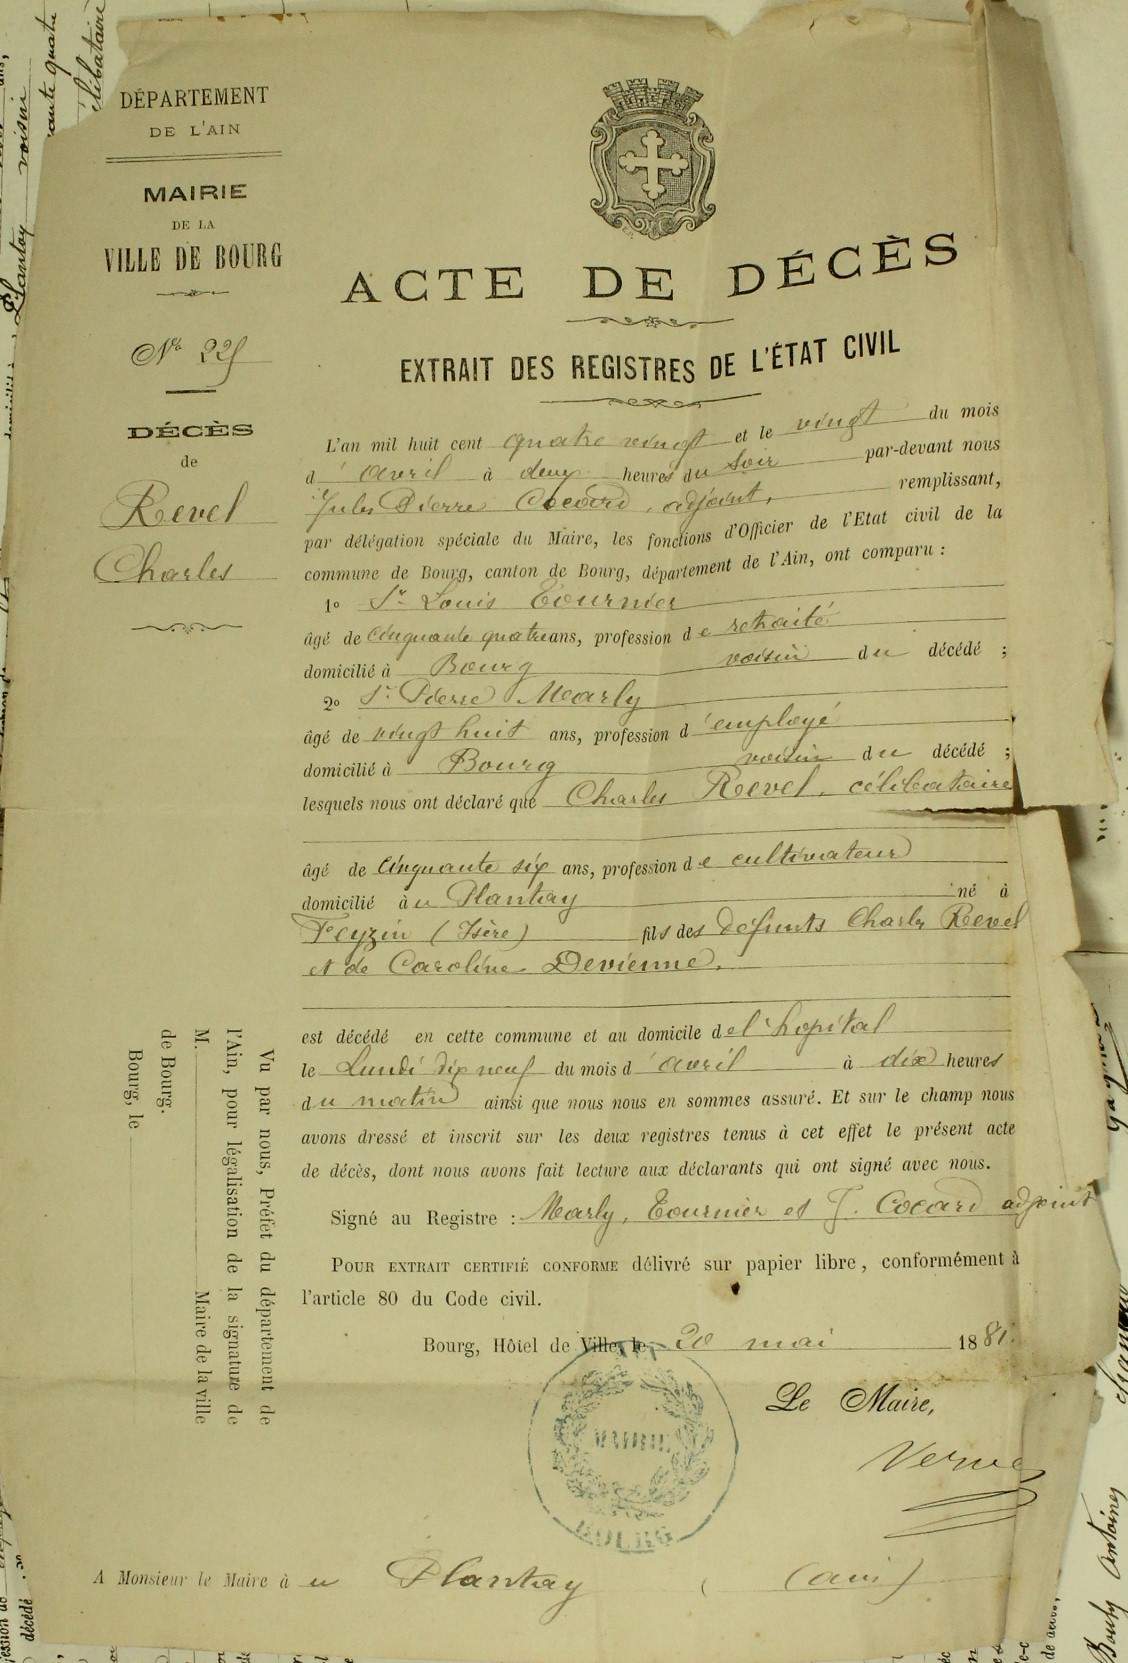 DÉPARTEMENT
DE L'AIN
MAIRIE
DE LA
VILLE DE BOURG
No 225
DÉCÈS
de
Revel
Charles
ACTE DE DÉCÈS
EXTRAIT DES REGISTRES DE L'ÉTAT CIVIL
L'an mil huit cent quatre vingt et le vingt du mois
d'avril à deux heures du soir par-devant nous
Jules Pierre Cocard, adjoint, remplissant,
par délégation spéciale du Maire, les fonctions d'Officier de l'Etat civil de la
commune de Bourg, canton de Bourg, département de l'Ain, ont comparu :
1o Sr Louis Tournier
âgé de cinquante quatre ans, profession de retraité
domicilié à Bourg voisin du décédé ;
2o Sr Pierre Marly
âgé de vingt huit ans, profession d'employé
domicilié à Bourg voisin du décédé ;
lesquels nous ont déclaré que Charles Revel, célibataire
âgé de cinquante six ans, profession de cultivateur
domicilié au Plantay né à
Feyzin (Isère) fils des défunts Charles Revel
et de Caroline Devienne,
est décédé en cette commune et au domicile de l'hopital
le Lundi dix neuf du mois d'avril à dix heures
du matin ainsi que nous nous en sommes assuré. Et sur le champ nous
avons dressé et inscrit sur les deux registres tenus à cet effet le présent acte
de décès, dont nous avons fait lecture aux déclarants qui ont signé avec nous.
Signé au Registre : Marly, Tournier et J. Cocard adjoint
POUR EXTRAIT CERTIFIÉ CONFORME délivré sur papier libre, conformément à
l'article 80 du Code civil.
Bourg, Hôtel de Ville, le 20 mai 1881.
Le Maire,
MAIRIE
BOURG
A Monsieur le Maire à u Plantay (ain)
Vu par nous, Préfet du département de
l'Ain, pour légalisation de la signature de
M. Maire de la ville
de Bourg.
Bourg, le